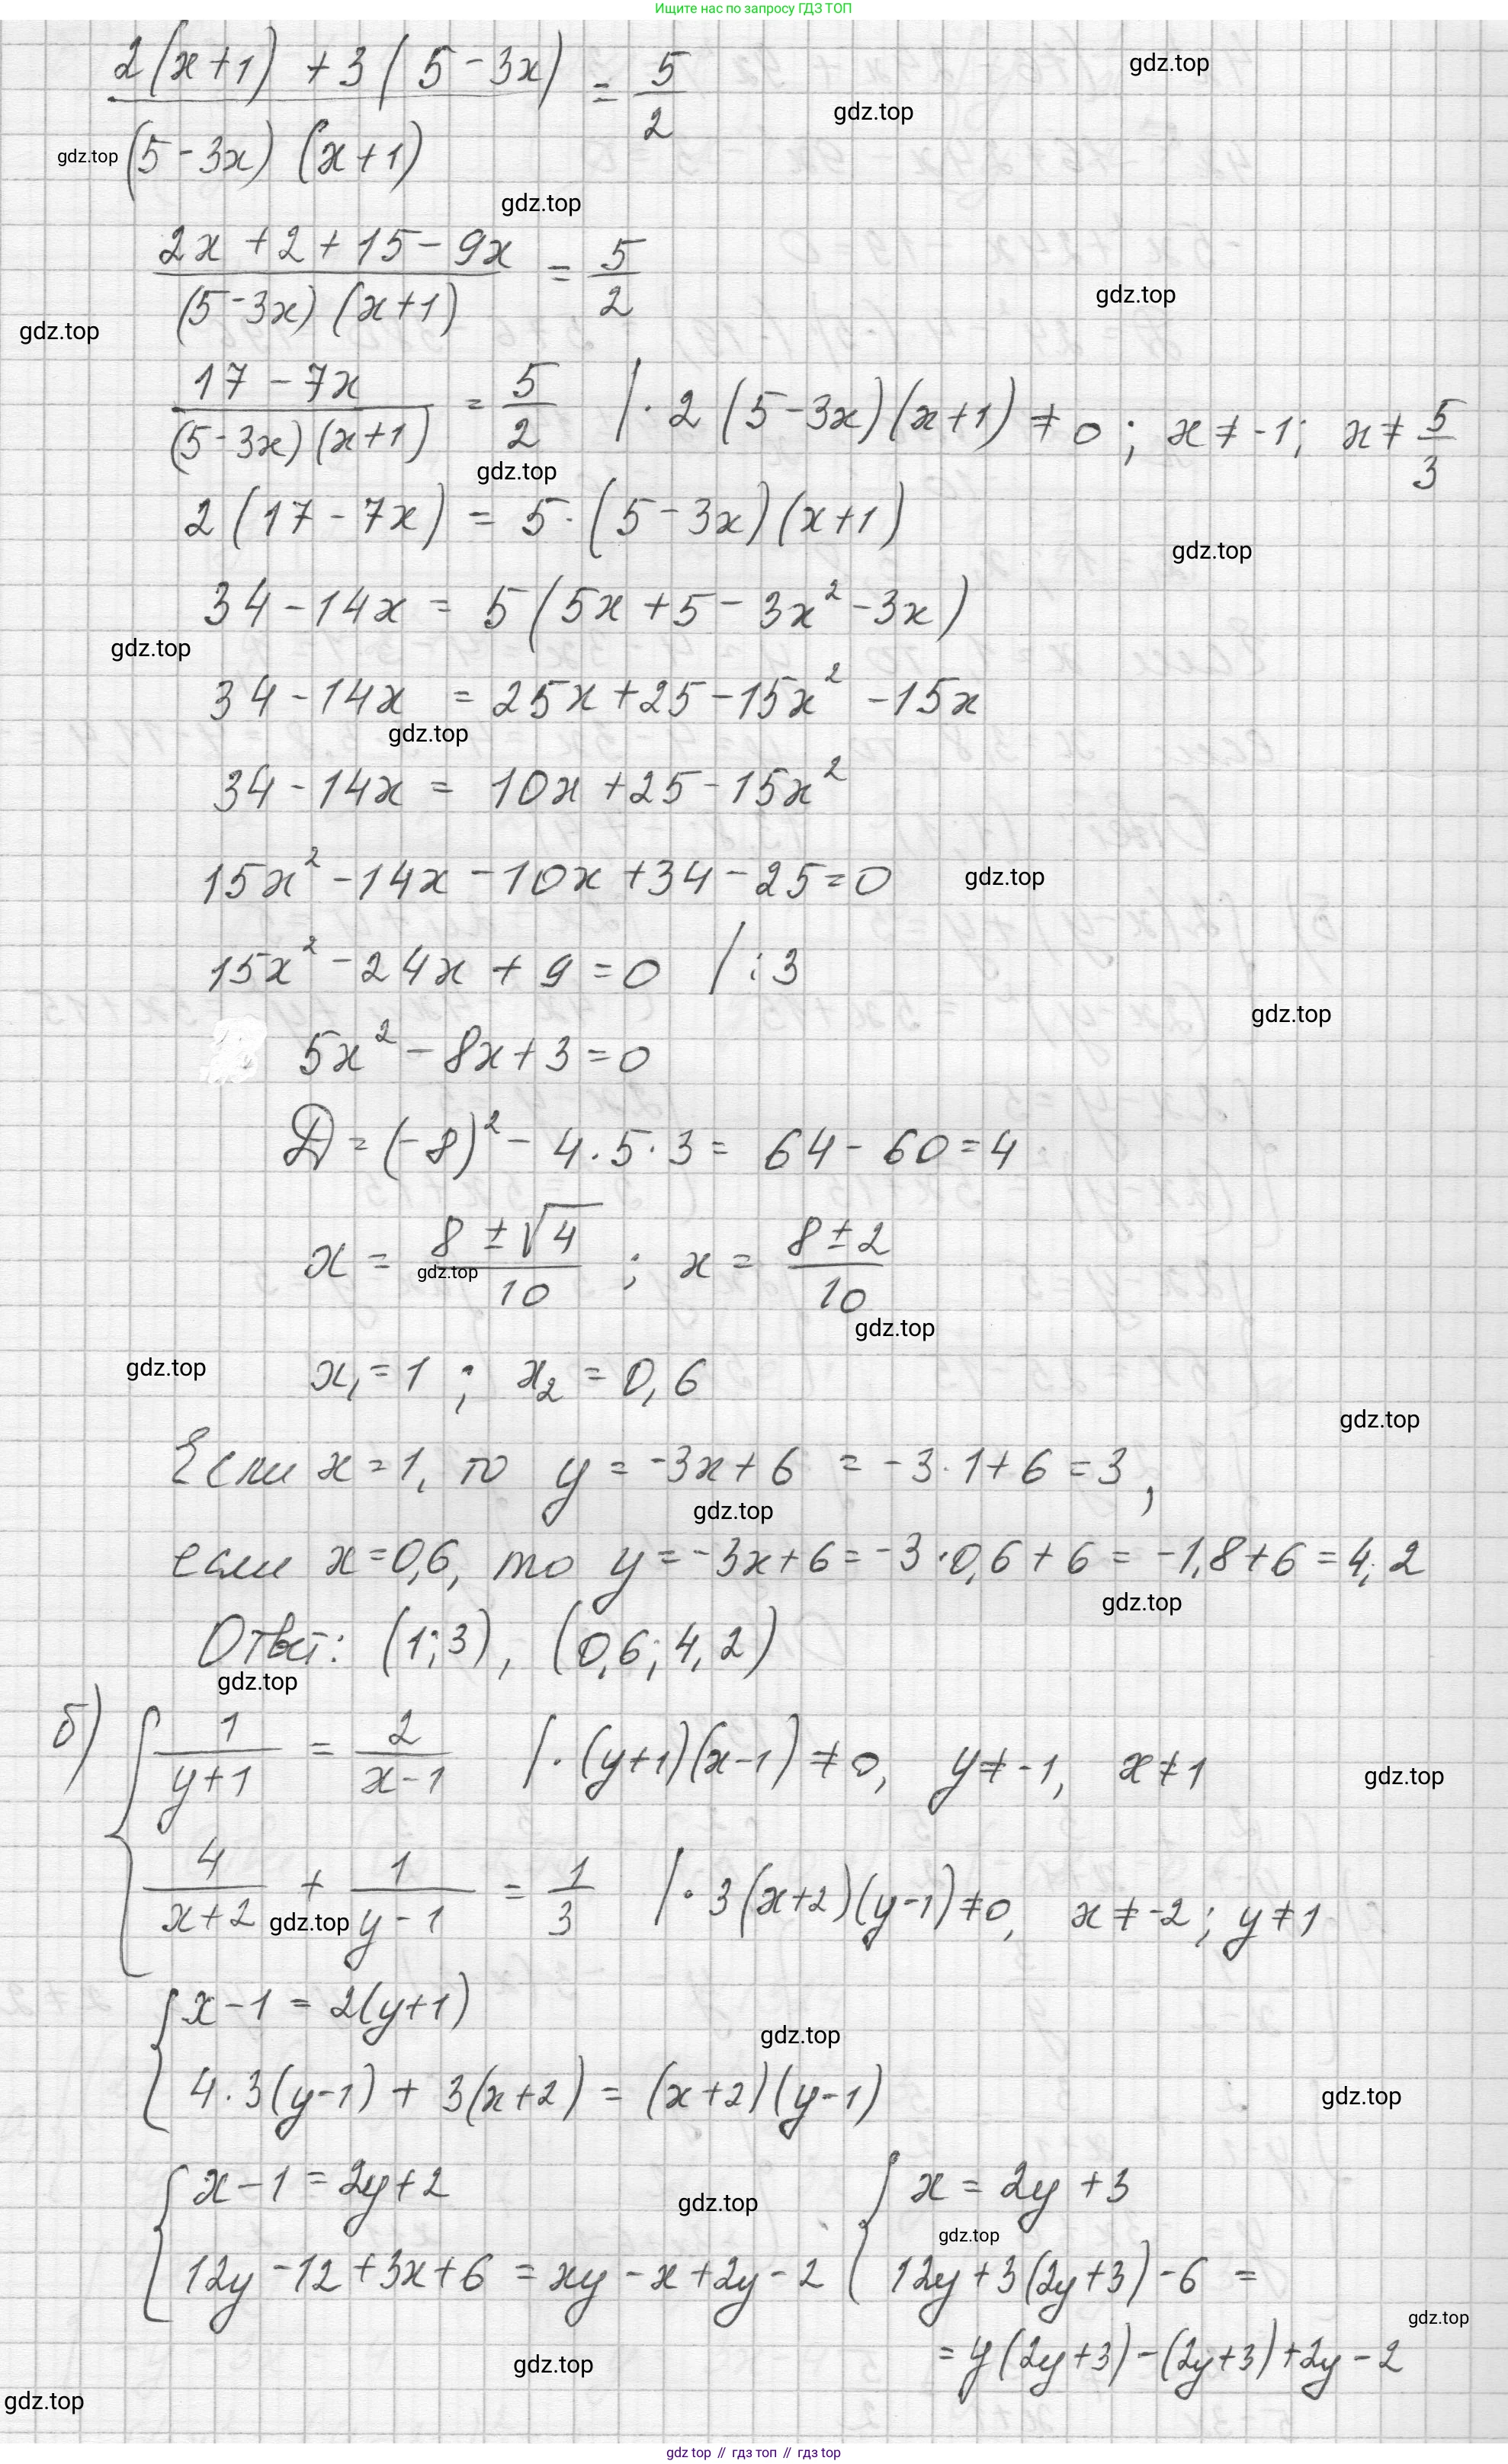 Ищите нас по запросу ГДЗ ТОП
2(x+1) + 3(5-3x) / (5-3x)(x+1) = 5/2
gdz.top
gdz.top
gdz.top
gdz.top
2x+2+15-9x / (5-3x)(x+1) = 5/2
gdz.top
gdz.top
17-7x / (5-3x)(x+1) = 5/2 | · 2(5-3x)(x+1) ≠ 0; x ≠ -1; x ≠ 5/3
gdz.top
2(17-7x) = 5·(5-3x)(x+1)
gdz.top
34-14x = 5(5x+5-3x²-3x)
gdz.top
34-14x = 25x+25-15x²-15x
gdz.top
34-14x = 10x+25-15x²
15x²-14x-10x+34-25=0
gdz.top
15x²-24x+9=0 | :3
gdz.top
5x²-8x+3=0
D=(-8)²-4·5·3=64-60=4
x = 8±√4 / 10 ; x = 8±2 / 10
gdz.top
gdz.top
gdz.top
x₁=1; x₂=0,6
gdz.top
Если x=1, то y=-3x+6 = -3·1+6=3,
gdz.top
если x=0,6, то y=-3x+6=-3·0,6+6=-1,8+6=4,2
gdz.top
Ответ: (1;3), (0,6;4,2)
gdz.top
б) { 1/(y+1) = 2/(x-1) | · (y+1)(x-1) ≠ 0, y ≠ -1, x ≠ 1
gdz.top
4/(x+2) + 1/(y-1) = 1/3 | · 3(x+2)(y-1) ≠ 0, x ≠ -2; y ≠ 1
gdz.top
{ x-1=2(y+1)
gdz.top
4·3(y-1)+3(x+2)=(x+2)(y-1)
gdz.top
{ x-1=2y+2 { x=2y+3
gdz.top
gdz.top
12y-12+3x+6=xy-x+2y-2 12y+3(2y+3)-6 =
gdz.top
= y(2y+3)-(2y+3)+2y-2
gdz.top
gdz.top
gdz top // гдз топ // гдз top